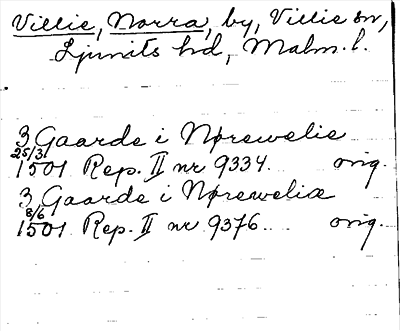 Villie, Norra, by, Villie sn,
Ljunits hd, Malm. l.
3 Gaarde i Nørewelie
25/3 1501 Rep. II nr 9334. orig.
3 Gaarde i Nøreweliæ
8/6 1501 Rep. II nr 9376. orig.